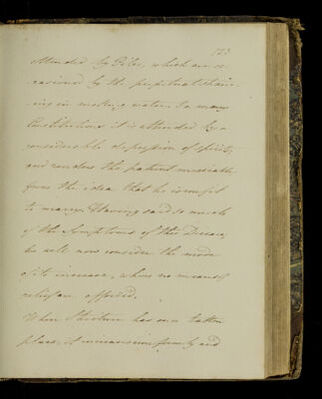 123
attended by Piles, which are oc
casioned by the perpetual strain-
ing in making water. In many
Constitutions it is attended by a
considerable depression of spirits,
and renders the patient miserable
from the idea that he is unfit
to marry. Having said so much
of the Symptoms of this Disease,
we will now consider the mode
of its increase, where no means of
relief are afforded.
When Stricture has once taken
place, it increases in firmity and